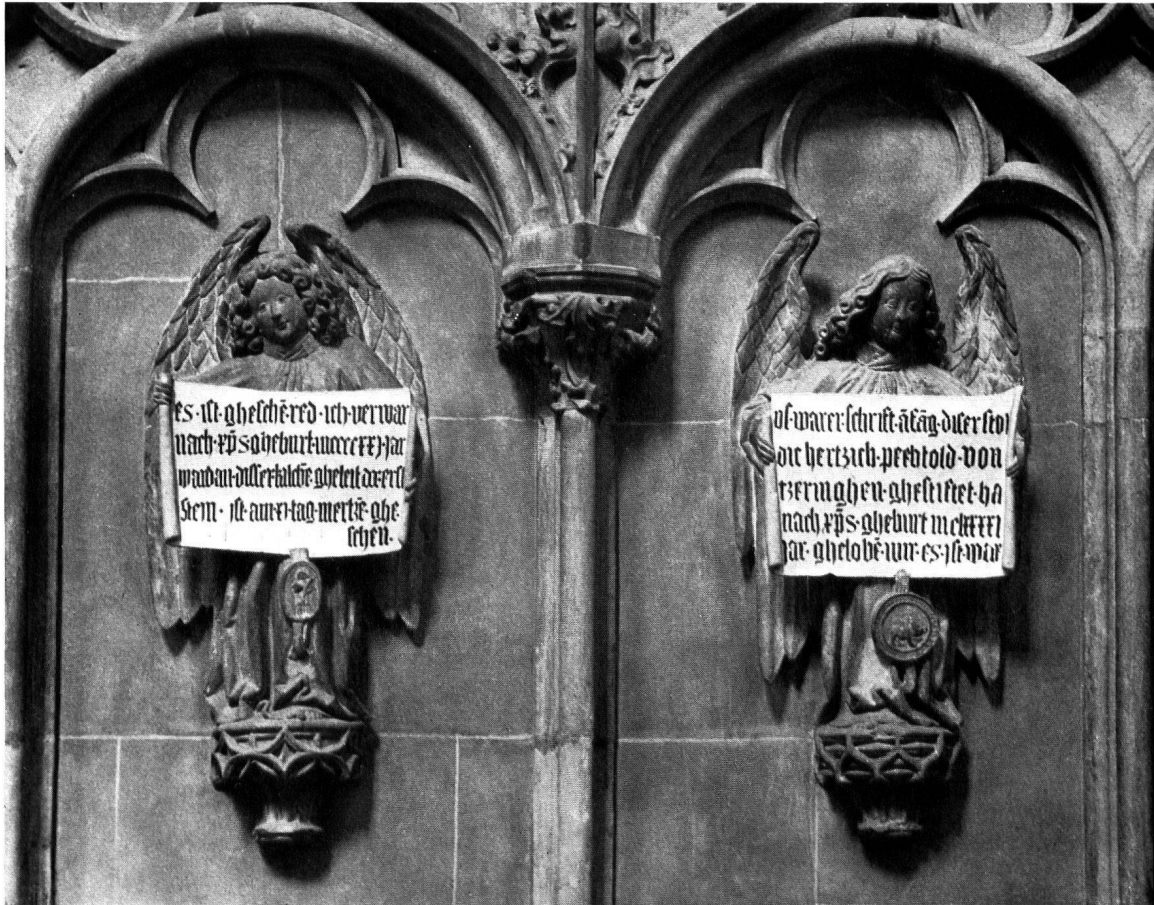 es · ist · gheschē · red · ich · verwar
nach · xp̄s · gheburt · mccccxxj · jar
ward · an · disser · kilchē · gheleit · dz · erst
stein · ist · am · xj · tag · mertzē · ghe
schen ·
us · warer · schrift · āfāg · diser · stot
die hertzich · perhtold · von
tzeringhen · ghestiftet · ha
nach · xp̄s · gheburt mclxxxxj
jar · ghelobē · wir · es · ist · war